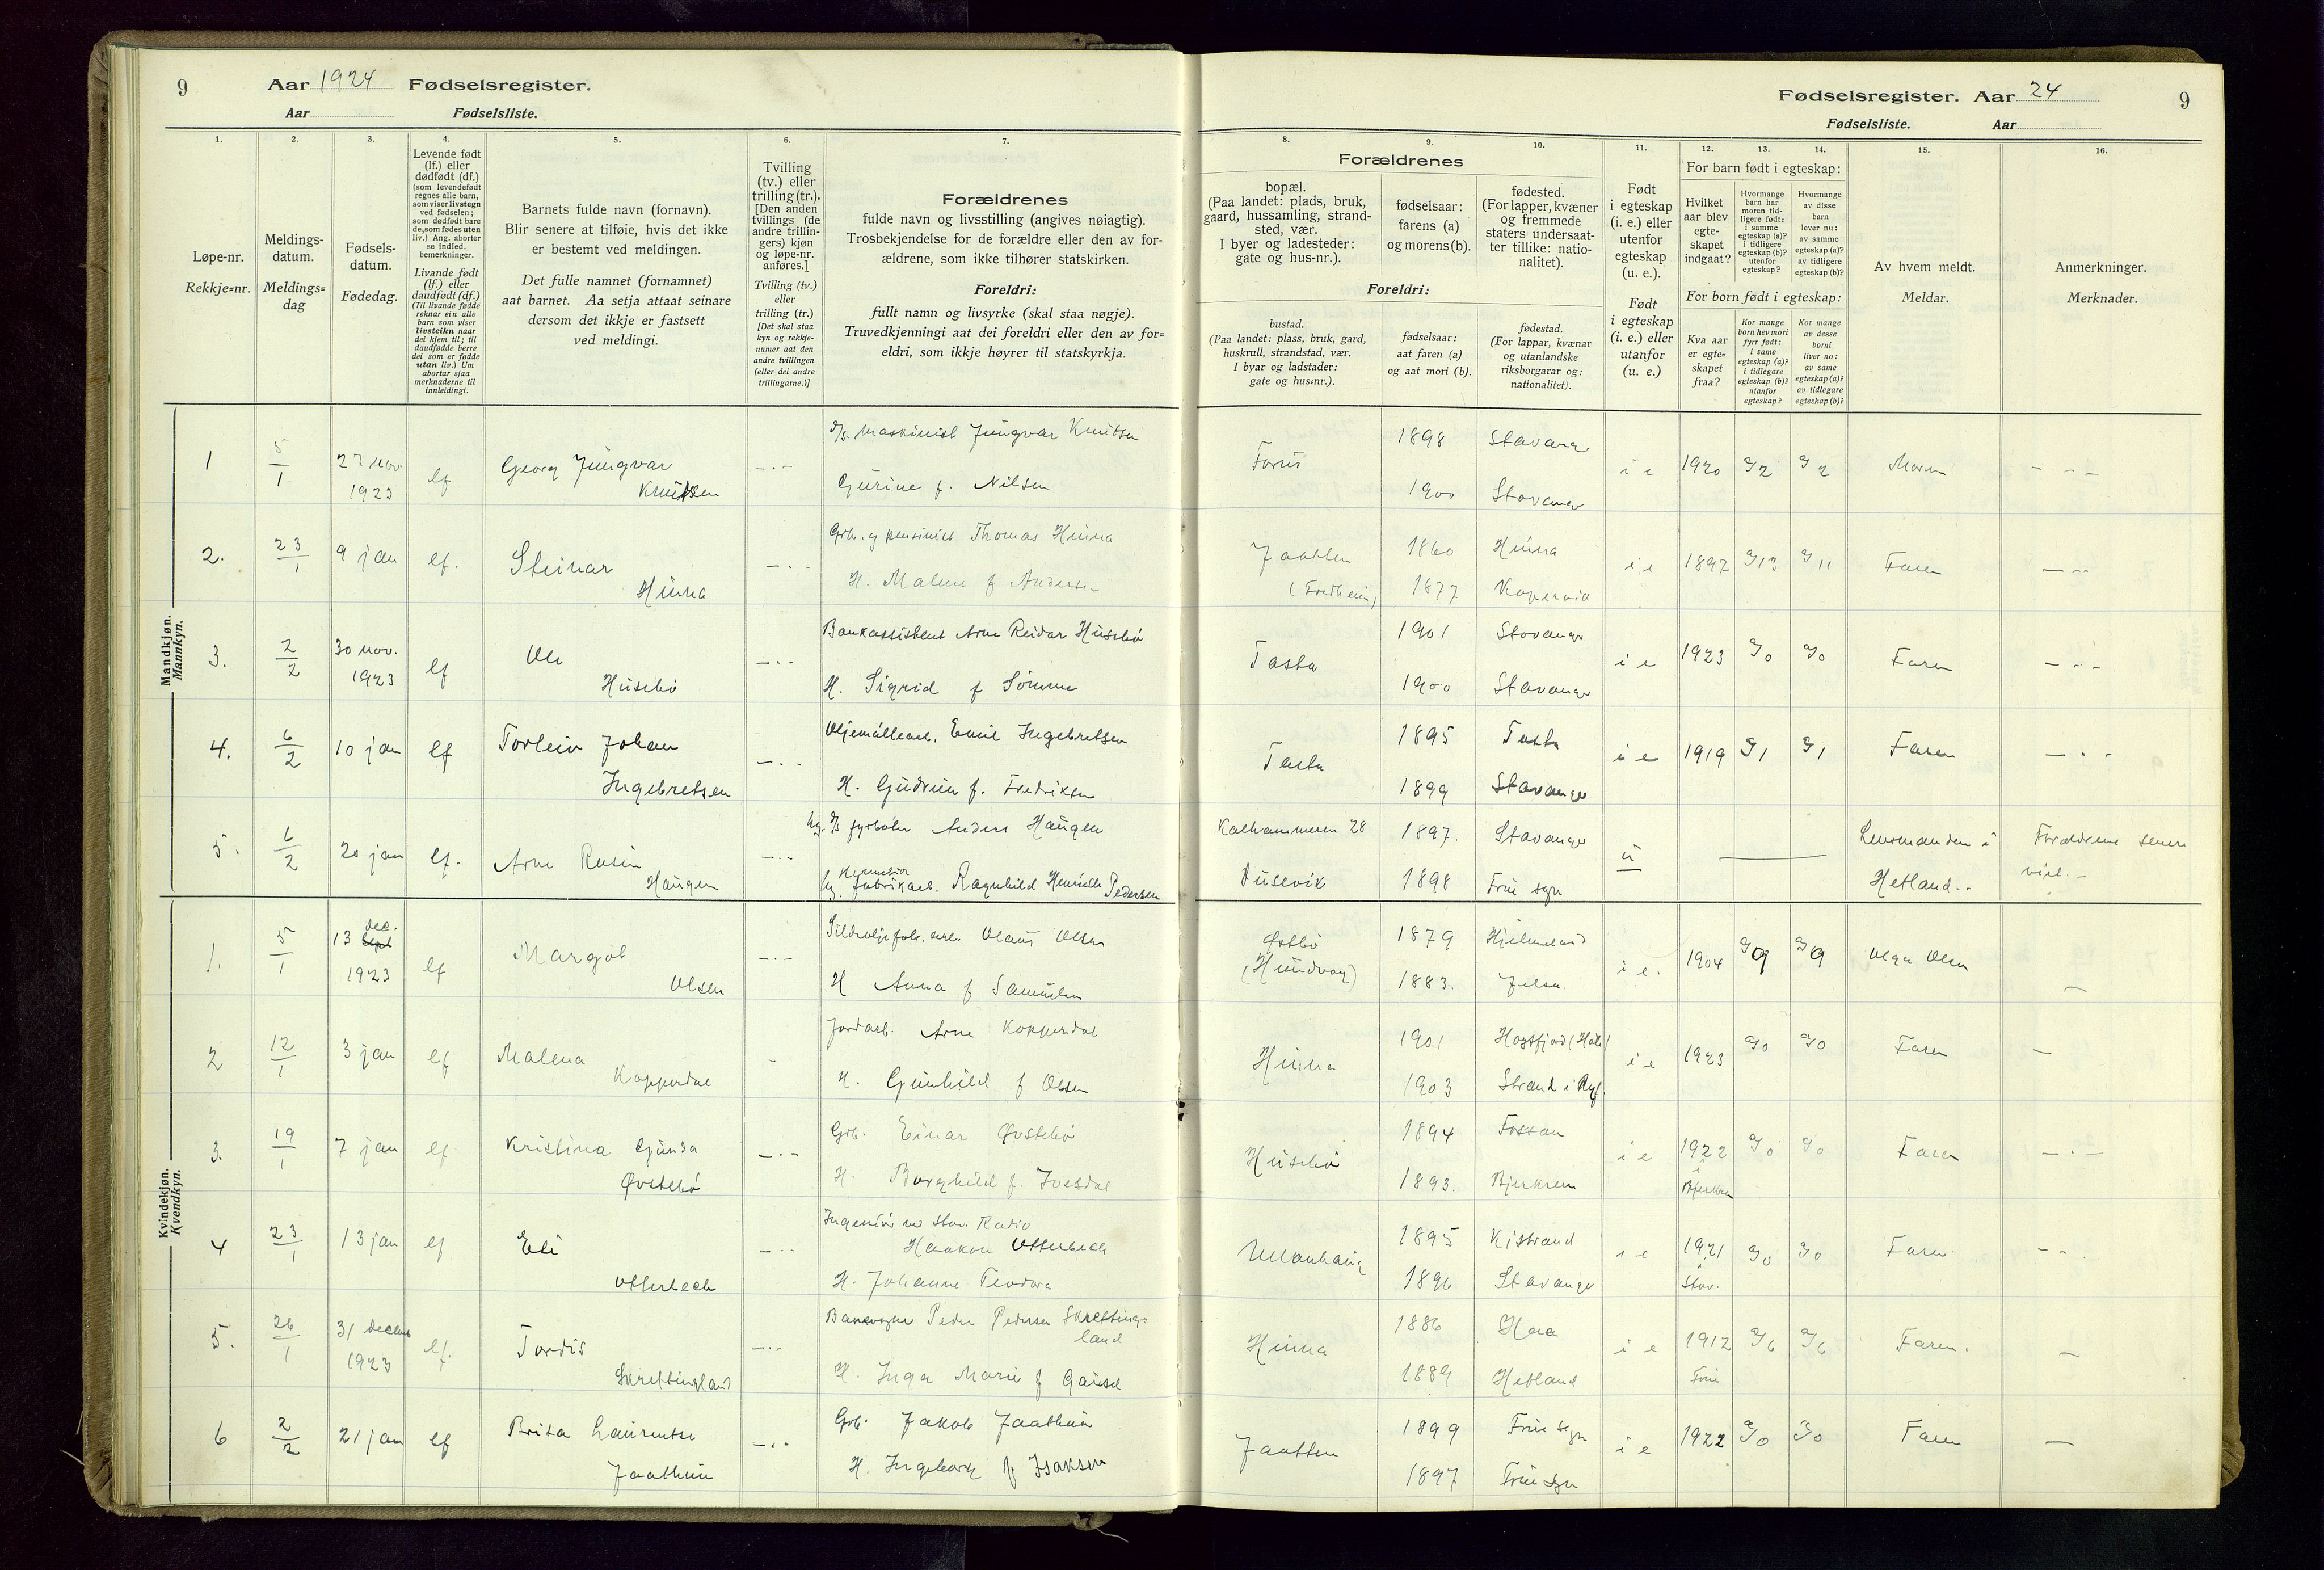 9
Aar 1924 Fødselsregister.
Aar Fødselsliste.
1. 2. 3. 4. 5. 6. 7.
Løpe-nr.
Rekkje=nr.
Meldings-
datum.
Meldings=
dag
Fødsels-
datum.
Fødedag.
Levende født
(lf.) eller
dødfødt (df.)
(som levendefødt
regnes alle barn,
som viser livstegn
ved fødselen;
som dødfødt bare
de, som fødes uten
liv.) Ang. aborter
se indled.
bemerkninger.
Livande født
(lf.) eller
daudfødt (df.)
(Til livande fødde
reknar ein alle
barn som viser
livsteikn naar
dei kjem til; til
daudfødde berre
dei som er fødde
utan liv.) Um
abortar sjaa
merknaderne til
innleidingi.
Barnets fulde navn (fornavn).
Blir senere at tilføie, hvis det ikke
er bestemt ved meldingen.
Det fulle namnet (fornamnet)
aat barnet. Aa setja attaat seinare
dersom det ikkje er fastsett
ved meldingi.
Tvilling
(tv.) eller
trilling (tr.).
[Den anden
tvillings (de
andre trillin-
gers) kjøn
og løpe-nr.
anføres.]
Tvilling (tv.)
eller
trilling (tr.)
[Det skal staa
kyn og rekkje-
numer aat den
andre tvillingen
(eller dei andre
trillingarne.)]
Forældrenes
fulde navn og livsstilling (angives nøiagtig).
Trosbekjendelse for de forældre eller den av for-
ældrene, som ikke tilhører statskirken.
Foreldri:
fullt namn og livsyrke (skal staa nøgje).
Truvedkjenningi aat dei foreldri eller den av for=
eldri, som ikkje høyrer til statskyrkja.
Mandkjøn.
Mannkyn.
1 5/1 27 nov. 1923 lf Georg Jungvar Knutsen —.— maskinist Jungvar Knutsen
Gurine f. Nilsen
2. 23/1 9 jan lf. Steinar Hinna —.. Grb. og pensinist Thomas Hinna
H. Malene f Andersen
3. 2/2 30 nov. 1923 lf Ole Husebö —.— Bankassistent Arne Reidar Husebö
H. Sigrid f Sömme
4. 6/2 10 jan lf Torleiv Johan Ingebretsen —.. Oljemöllearb. Emil Ingebretsen
H. Gudrun f. Fredriksen
5. 6/2 20 jan lf. Arne Rusin Haugen —.— fyrböter Anders Haugen
Hermetik fabrikarb. Ragnhild Henriette Pedersen
Kvindekjøn.
Kvendkyn.
1. 5/1 13 dec. 1923 lf Margot Olsen —.— Sildoljefab. arb. Olaus Olsen
H Anna f Samuelsen
2 12/1 3 jan lf Malena Kopperdal - Jordarb. Arne Kopperdal
H. Gunhild f Olsen
3. 19/1 7 jan lf Kristina Gunda Øvstebö —.— Grb. Einar Øvstebö
H. Borghild f. Ivesdal
4 23/1 13 jan lf Eli Otterbech —.. Ingeniör ved Stav. Radio
Haakon Otterbech
H. Johanne Teodora
5. 26/1 31 decemb 1923 lf. Tordis Skrettingland —.— Banevogter Peder Pedersen Skrettings-
land
H. Inga Marie f Gausel
6 2/2 21 jan lf Brita Laurentse Jaathun —.. Grb. Jakob Jaathun
H. Ingeborg f Isaksen
Fødselsregister. Aar 24
Fødselsliste. Aar
9
8. 9. 10. 11. 12. 13. 14. 15. 16.
Forældrenes
bopæl.
(Paa landet: plads, bruk,
gaard, hussamling, strand-
sted, vær.
I byer og ladesteder:
gate og hus-nr.).
fødselsaar:
farens (a)
og morens (b).
fødested.
(For lapper, kvæner
og fremmede
staters undersaat-
ter tillike: natio-
nalitet).
Foreldri:
bustad.
(Paa landet: plass, bruk, gard,
huskrull, strandstad, vær.
I byar og ladstader:
gate og hus=nr.).
fødselsaar:
aat faren (a)
og aat mori (b).
fødestad.
(For lappar, kvænar
og utanlandske
riksborgarar og:
nationalitet).
Født
i egteskap
(i. e.) eller
utenfor
egteskap
(u. e.).
Født
i egteskap
(i. e.) eller
utanfor
(u. e.)
For barn født i egteskap:
Hvilket
aar blev
egte-
skapet
indgaat?
Hvormange
barn har
moren tid-
ligere født:
i samme
egteskap (a)?
i tidligere
egteskap (b)?
utenfor
egteskap?
Hvormange
av disse
barn
lever nu:
av samme
egteskap (a)?
av tidligere
egteskap (b)?
For born født i egteskap:
Kva aar
er egte=
skapet
fraa?
Kor mange
born hev mori
fyrr født:
i same
egteskap (a)?
i tidlegare
egteskap (b)?
utanfor
egteskap?
Kor mange
av desse
borni
liver no:
av same
egteskap (a)?
av tidlegare
egteskap (b)?
Av hvem meldt.
Meldar.
Anmerkninger.
Merknader.
Forus 1898 Stavanger
1900 Stavanger i e 1920 2 2 Moren - - -
Jaatten (Fredheim) 1860 Hinna
1877 Kopervik i e 1897 13 11 Faren — - -
Tasta 1901 Stavanger
1900 Stavanger i e 1923 0 0 Faren — - -
Tasta 1895 Tasta
1899 Stavanger i e 1919 1 1 Faren — - -
Kalhammeren 28
Dusevik 1897. Stavanger
1898 Frue sogn u — Lensmanden i
Hetland.. Forældrene senere
viet.-
Østbö
(Hundvaag) 1879 Hjelmeland
1883. Jelsa i e. 1904 9 9 Olga Olsen —
Hinna 1901 Høgsfjord (Høle)
1903 Strand i Ryf. i e 1923 0 0 Faren —
Husebö 1894 Fossan
1893. Bjerkrem i e 1922 i Bjerkrem 0 0 Faren —.—
Ullanhaug 1895 Kistrand
1896 Stavanger i e 1921 i Stav. 0 0 Faren - - .
Hinna 1886 Haa
1889 Hetland i e 1912 Frue 6 6 Faren. —
Jaatten 1899 Frue sogn
1897 Frue sogn i e 1922 0 0 Faren —